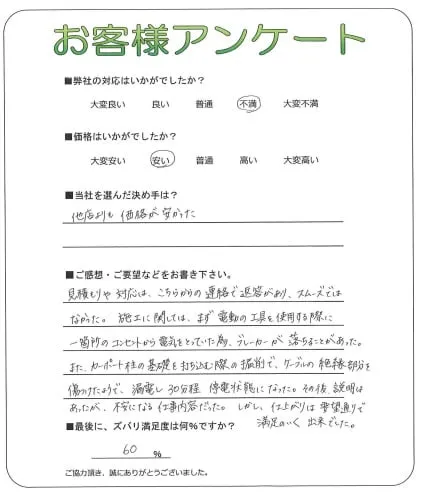 お客様アンケート
■弊社の対応はいかがでしたか?
大変良い 良い 普通 不満 大変不満
■価格はいかがでしたか?
大変安い 安い 普通 高い 大変高い
■当社を選んだ決め手は?
他店よりも価格が安かった
■ご感想・ご要望などをお書き下さい。
見積もりや対応は、こちらからの連絡で返答があり、スムーズでは
なかった。施工に関しては、まず電動の工具を使用する際に
一箇所のコンセントから電気をとっていた為、ブレーカーが落ちることがあった。
また、カーポート柱の基礎を打ち込む際の掘削で、ケーブルの絶縁部分を
傷つけたようで、漏電し30分程停電状態になった。その後、説明は
あったが、不安になる仕事内容だった。しかし、仕上がりは要望通りで
満足のいく出来でした。
■最後に、ズバリ満足度は何%ですか?
60 %
ご協力頂き、誠にありがとうございました。